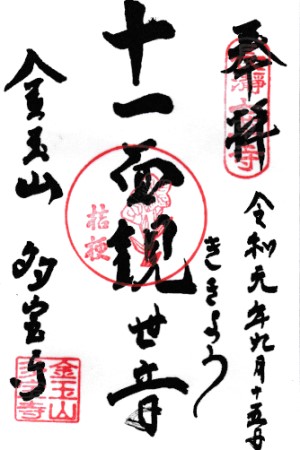 奉拝
令和元年九月十五日
ききょう
十一面観世音
桔梗
金玉山
多宝寺
金玉山
多宝寺